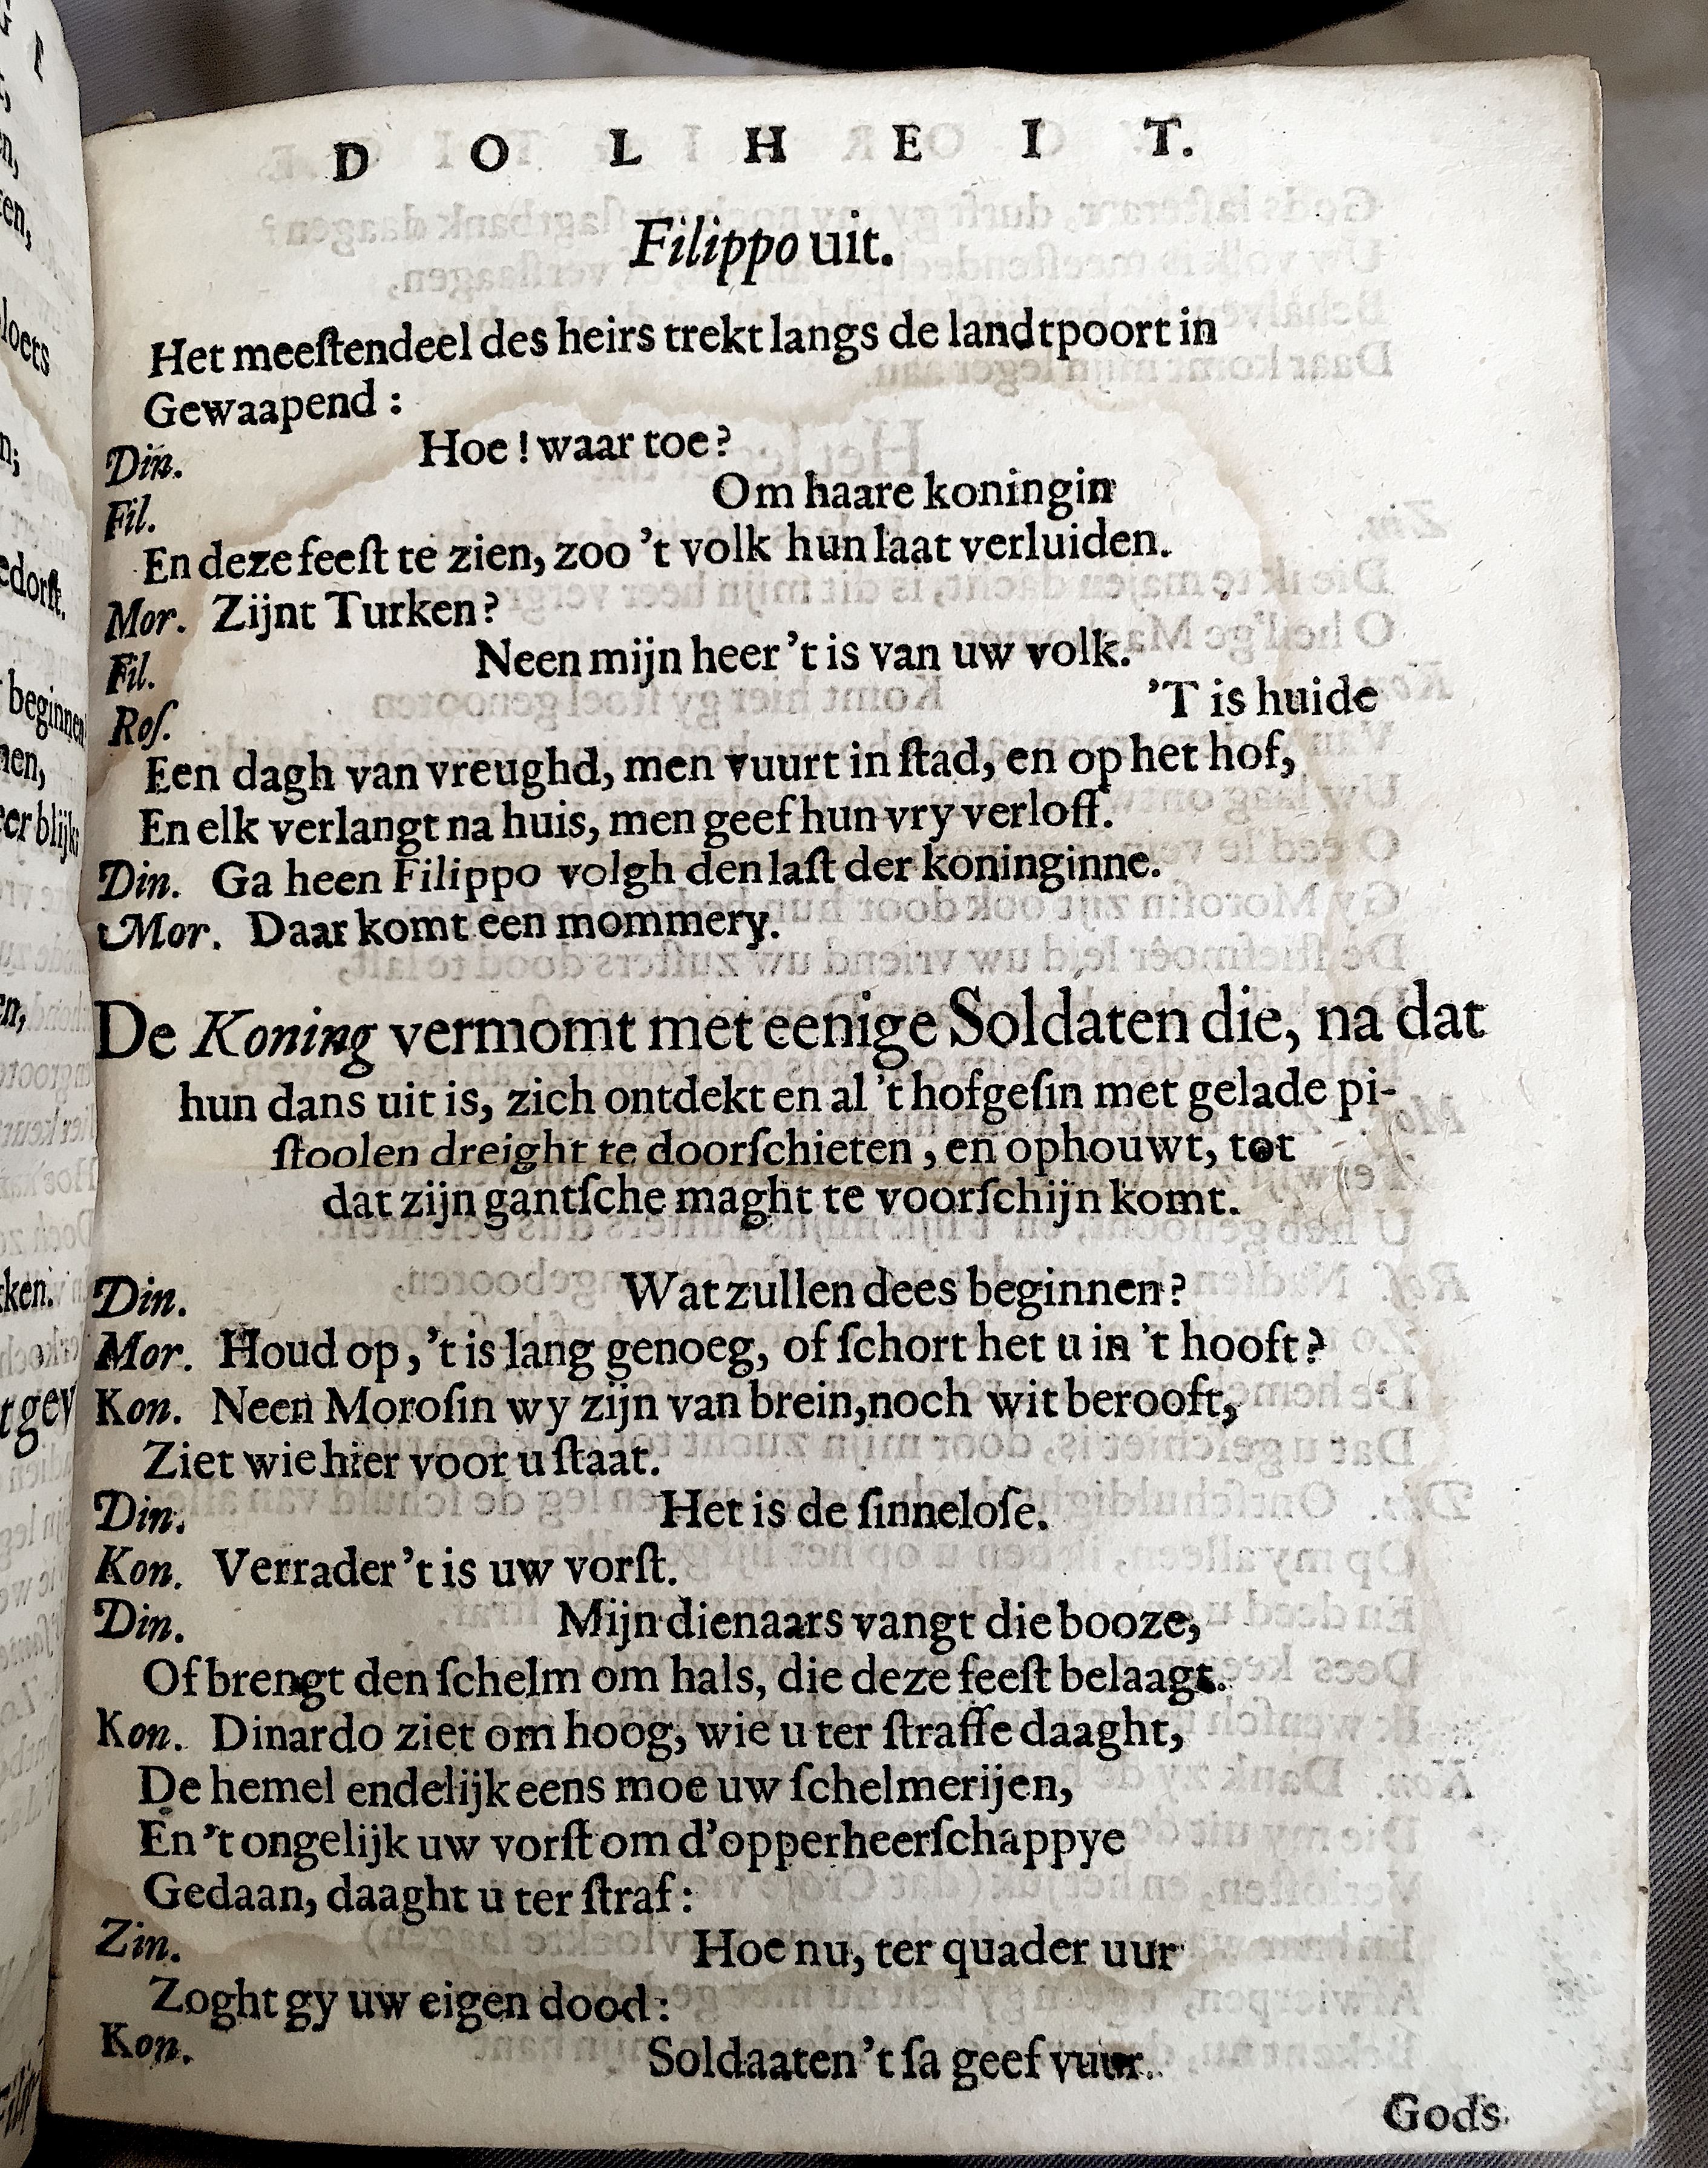 DOLHEIT.
Filippo uit.
Het meeſtendeel des heirs trekt langs de landtpoort in
Gewaapend :
Din. Hoe ! waar toe?
Fil. Om haare koningin
En deze feeſt te zien, zoo 't volk hun laat verluiden.
Mor. Zijnt Turken?
Fil. Neen mijn heer 't is van uw volk.
Roſ. 'T is huide
Een dagh van vreughd, men vuurt in ſtad, en op het hof,
En elk verlangt na huis, men geef hun vry verloff.
Din. Ga heen Filippo volgh den laſt der koninginne.
Mor. Daar komt een mommery.
De Koning vermomt met eenige Soldaten die, na dat
hun dans uit is, zich ontdekt en al 't hofgeſin met gelade pi-
ſtoolen dreight te doorſchieten, en ophouwt, tot
dat zijn gantſche maght te voorſchijn komt.
Din. Wat zullen dees beginnen?
Mor. Houd op, 't is lang genoeg, of ſchort het u in 't hooft?
Kon. Neen Moroſin wy zijn van brein, noch wit berooft,
Ziet wie hier voor u ſtaat.
Din. Het is de ſinneloſe.
Kon. Verrader 't is uw vorſt.
Din. Mijn dienaars vangt die booze,
Of brengt den ſchelm om hals, die deze feeſt belaagt.
Kon. Dinardo ziet om hoog, wie u ter ſtraffe daaght,
De hemel endelijk eens moe uw ſchelmerijen,
En 't ongelijk uw vorſt om d'opperheerſchappye
Gedaan, daaght u ter ſtraf:
Zin. Hoe nu, ter quader uur
Zoght gy uw eigen dood:
Kon. Soldaaten 't ſa geef vuur.
Gods